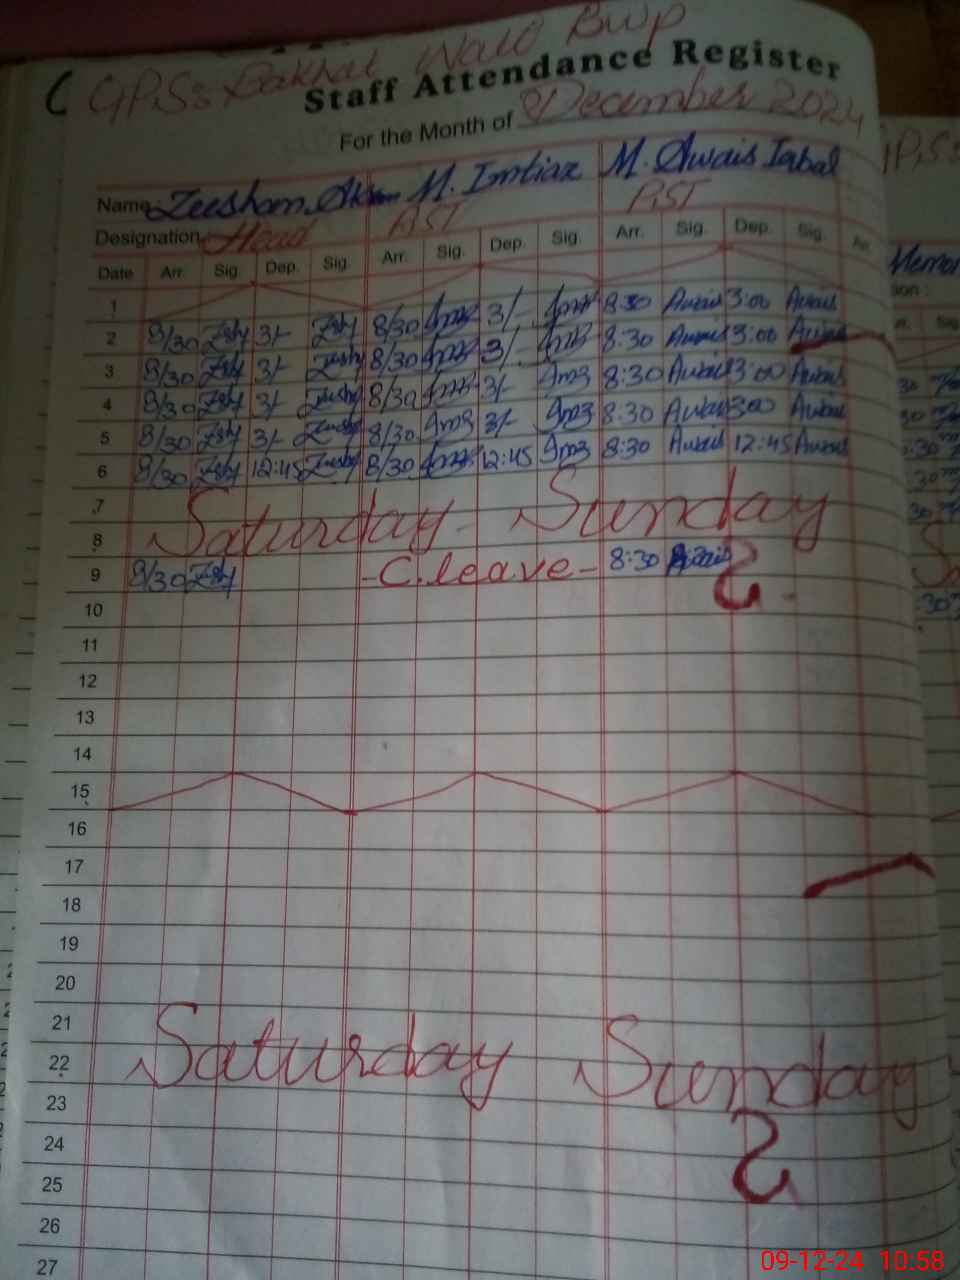 GPS: Bakhat Wald Bwp
Staff Attendance Register
For the Month of December 2024
Name: Zeeshan M. Imtiaz M. Awais Iqbal
Designation: Head PST PST
Date Arr. Sig. Dep. Sig. Arr. Sig. Dep. Sig. Arr. Sig. Dep. Sig. Arr.
1
2 8/30 Zsh 3/- Zsh 8/30 Imz 3/- Imz 8:30 Awais 3:00 Awais
3 8/30 Zsh 3/- Zeesh 8/30 Imz 3/- Imz 8:30 Awais 3:00 Awais
4 8/30 Zsh 3/- Zeesh 8/30 Imz 3/- Imz 8:30 Awais 3:00 Awais
5 8/30 Zsh 3/- Zeesh 8/30 Imz 3/- Imz 8:30 Awais 3:00 Awais
6 8/30 Zsh 12:45 Zeesh 8/30 Imz 12:45 Imz 8:30 Awais 12:45 Awais
7
Saturday - Sunday
8
9 8/30 Zsh - C.leave - 8:30 Awais
10
11
12
13
14
15
16
17
18
19
20
21
Saturday Sunday
22
23
24
25
26
27
09-12-24 10:58